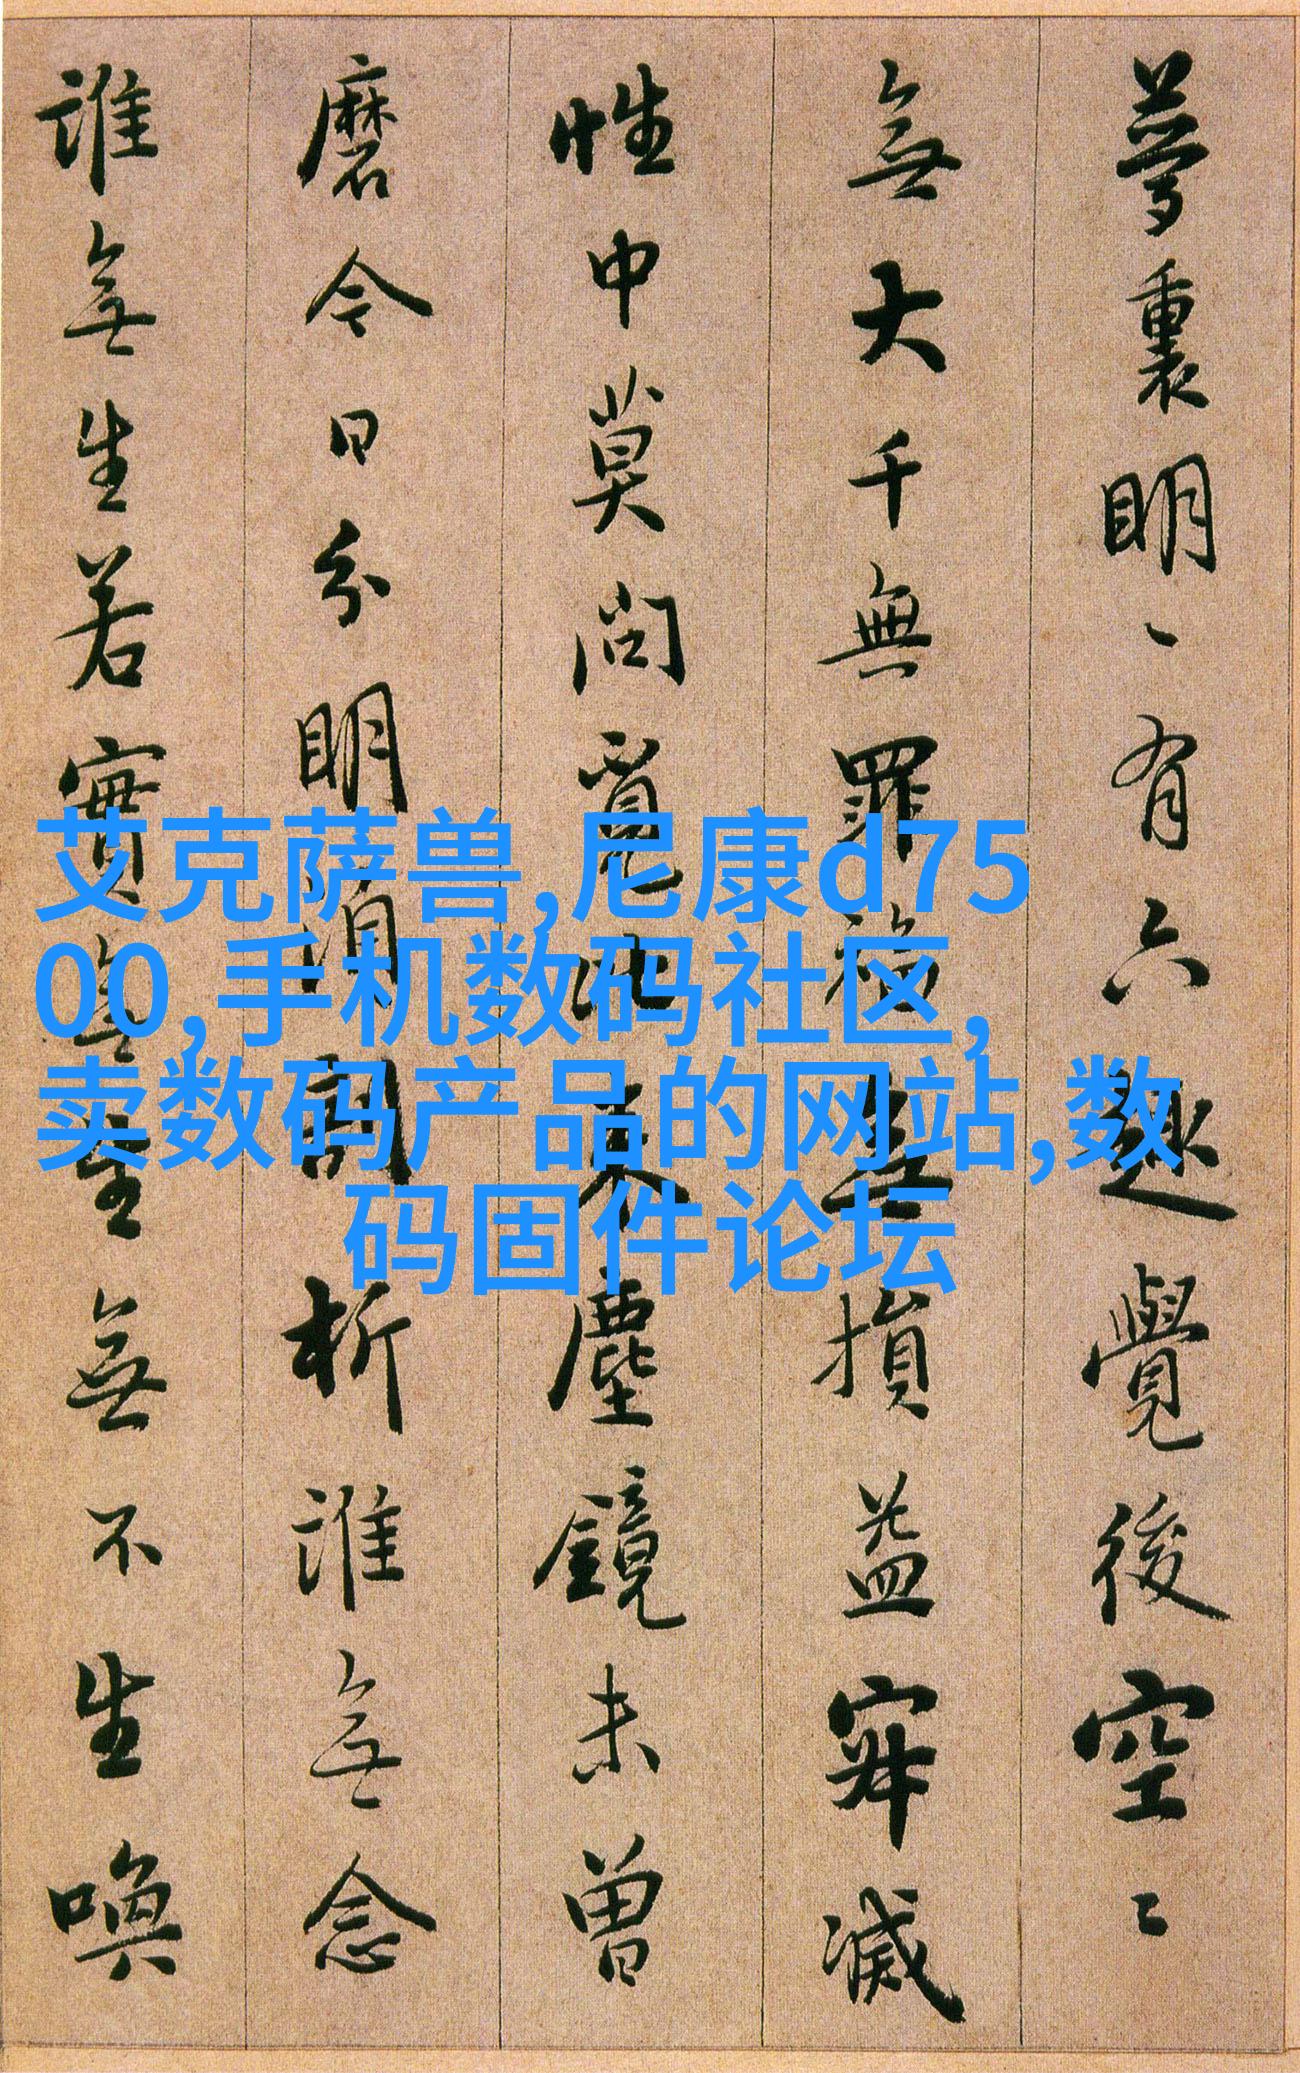 夢裏明〻有六趣覺後空〻
無大千無罪福無損益寂滅
性中莫問覓比來塵鏡未曾
磨今日分明須剖析誰無念
誰無生若實無生無不生喚
艾克萨兽,尼康d75
00,手机数码社区,
卖数码产品的网站,数
码固件论坛